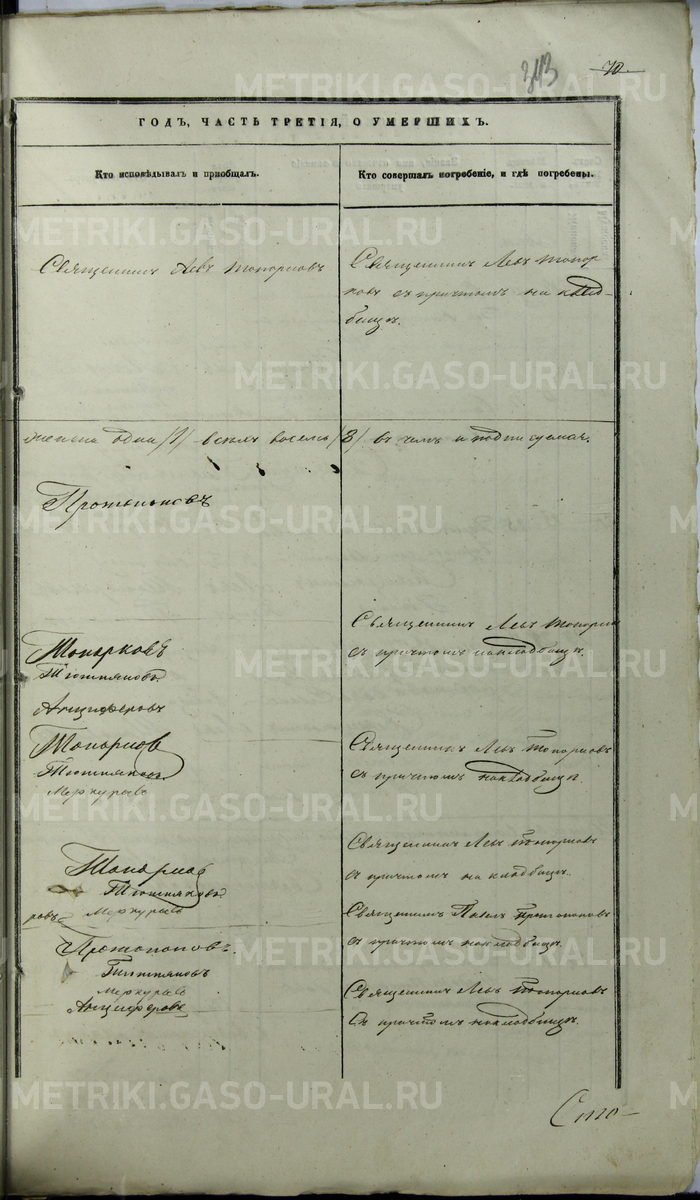 343 70
ГОДЪ, ЧАСТЬ ТРЕТІЯ, О УМЕРШИХЪ.
Кто исповѣдывалъ и пріобщалъ.
Кто совершалъ погребеніе, и гдѣ погребены.
Священникъ Левъ Топорковъ
Священникъ Левъ Топор
ковъ съ причтомъ на клад-
бищѣ.
женска одна /1/ всѣхъ восемь /8/ въ чемъ и подписуемся.
Протопоповъ
Священникъ Левъ Топорко
съ причтомъ на кладбищѣ.
Топорковъ
Тюшняковъ
Анциферовъ
Топорковъ
Тюшняковъ
Меркурьевъ
Священникъ Левъ Топорковъ
съ причтомъ на кладбищѣ.
Топорков
Тюшняковъ
Меркурьевъ
Священникъ Левъ Топорковъ
съ причтомъ на кладбищѣ.
ровъ
Протопоповъ.
Тюшняковъ
Меркурьевъ
Анциферовъ
Священникъ Павелъ Протопоповъ
съ причтомъ на кладбищѣ.
Священникъ Левъ Топорковъ
Съ причтомъ на кладбищѣ.
METRIKI.GASO-URAL.RU